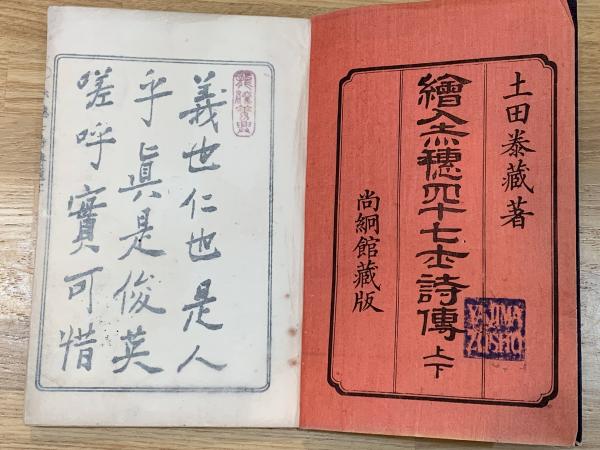 土田泰藏著
繪入赤穗四十七士詩傳 上下
尚絅館藏版
YAJIMA
ZOSHO
義也仁也是人
乎眞是俊英
嗟呼實可惜